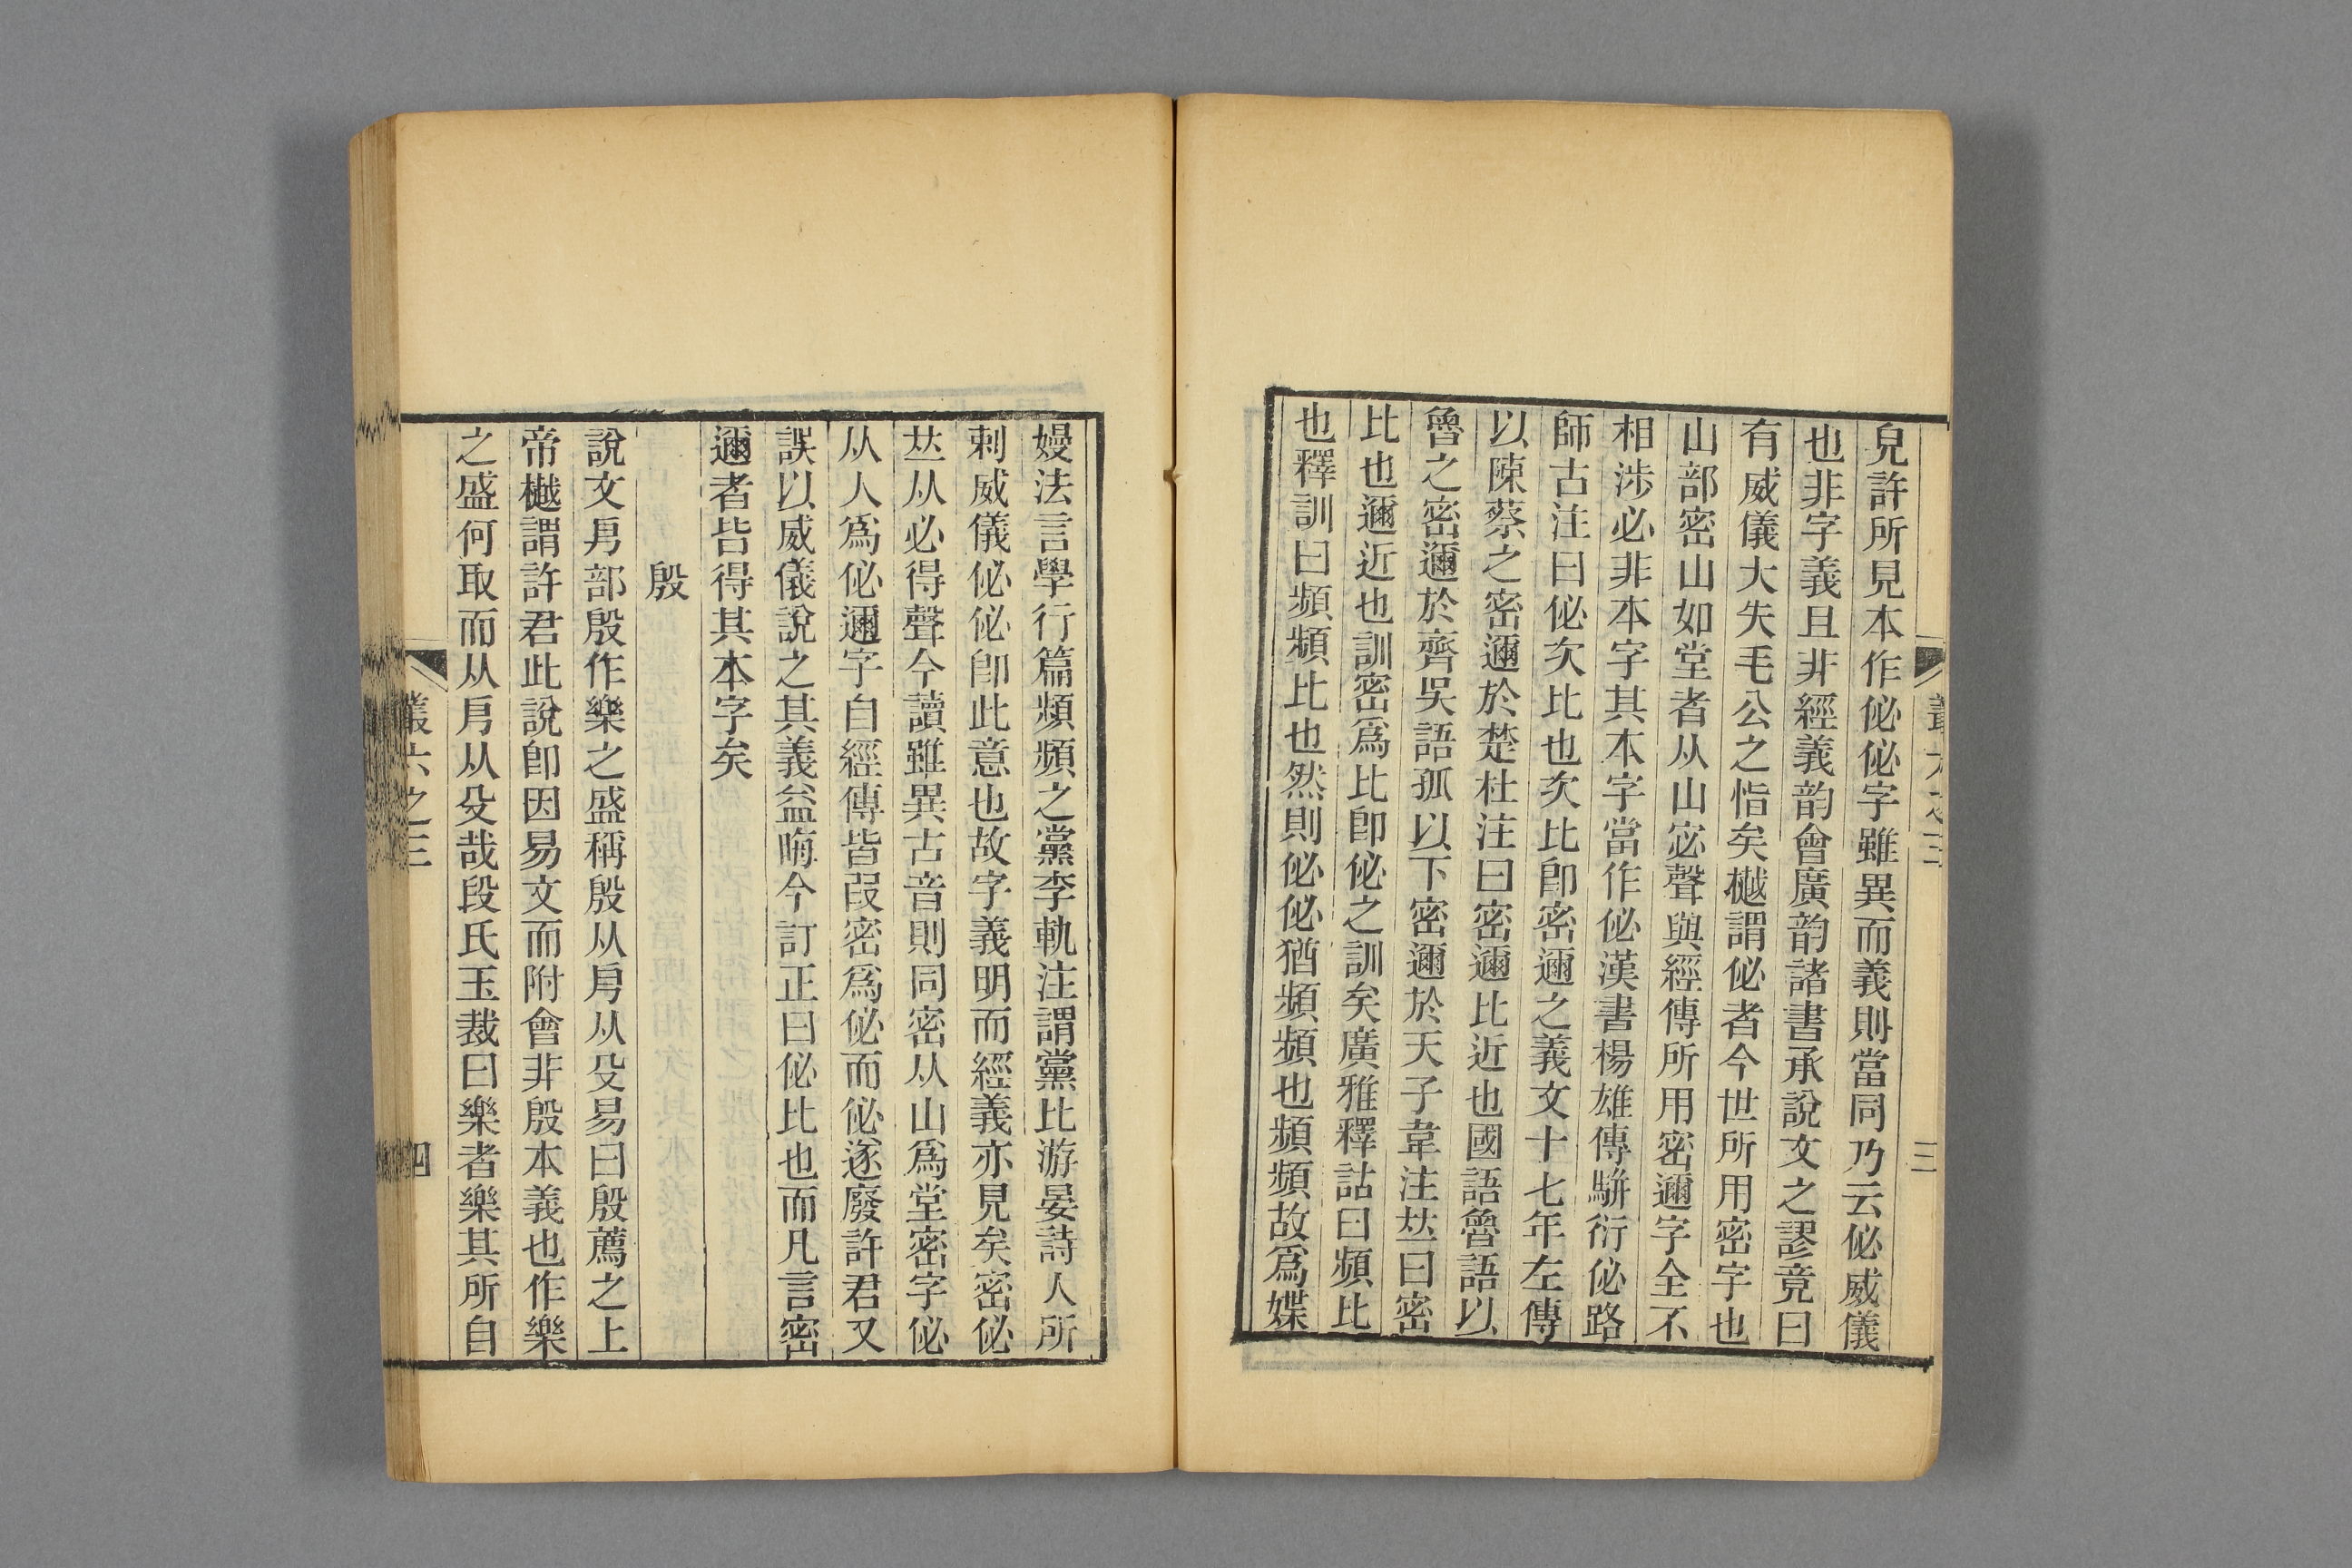 皃許所見本作佖佖字雖異而義則當同乃云佖威儀
也非字義且非經義韵會廣韵諸書承說文之謬竟曰
有威儀大失毛公之恉矣樾謂佖者今世所用密字也
山部密山如堂者从山宓聲與經傳所用密邇字全不
相涉必非本字其本字當作佖漢書楊雄傳駢衍佖路
師古注曰佖次比也次比卽密邇之義文十七年左傳
以陳蔡之密邇於楚杜注曰密邇比近也國語魯語以
魯之密邇於齊吳語孤以下密邇於天子韋注竝曰密
比也邇近也訓密爲比卽佖之訓矣廣雅釋詁曰頻比
也釋訓曰頻頻比也然則佖佖猶頻頻也頻頻故爲媟
嫚法言學行篇頻頻之黨李軌注謂黨比游晏詩人所
刺威儀佖佖卽此意也故字義明而經義亦見矣密佖
竝从必得聲今讀雖異古音則同密从山爲堂密字佖
从人爲佖邇字自經傳皆叚密爲佖而佖遂廢許君又
誤以威儀說之其義益晦今訂正曰佖比也而凡言密
邇者皆得其本字矣
殷
說文㐆部殷作樂之盛稱殷从㐆从殳易曰殷薦之上
帝樾謂許君此說卽因易文而附會非殷本義也作樂
之盛何取而从㐆从殳哉段氏玉裁曰樂者樂其所自
叢六之三
三
叢六之三
四